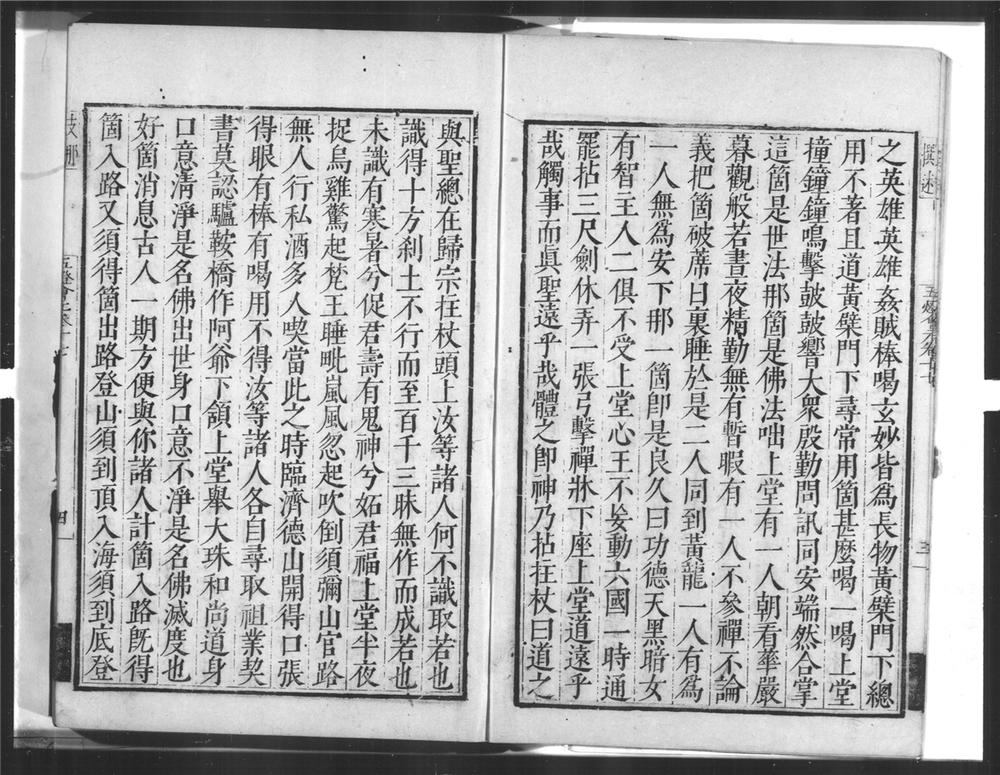 之英雄英雄姦賊棒喝玄妙皆爲長物黃檗門下總
用不著且道黃檗門下尋常用箇甚麼喝一喝上堂
撞鐘鐘鳴擊皷皷響大衆殷勤問訊同安端然合掌
這箇是世法那箇是佛法咄上堂有一人朝看華嚴
暮觀般若晝夜精勤無有暫暇有一人不參禪不論
義把箇破蓆日裏睡於是二人同到黃龍一人有爲
一人無爲安下那一箇卽是良久曰功德天黑暗女
有智主人二俱不受上堂心王不妄動六國一時通
罷拈三尺劍休弄一張弓擊禪牀下座上堂道遠乎
哉觸事而眞聖遠乎哉體之卽神乃拈拄杖曰道之
與聖總在歸宗拄杖頭上汝等諸人何不識取若也
識得十方刹土不行而至百千三昧無作而成若也
未識有寒暑兮促君壽有鬼神兮妬君福上堂半夜
捉烏雞驚起梵王睡毗嵐風忽起吹倒須彌山官路
無人行私酒多人喫當此之時臨濟德山開得口張
得眼有棒有喝用不得汝等諸人各自尋取祖業契
書莫認驢鞍橋作阿爺下頷上堂舉大珠和尚道身
口意淸淨是名佛出世身口意不淨是名佛滅度也
好箇消息古人一期方便與你諸人計箇入路旣得
箇入路又須得箇出路登山須到頂入海須到底登